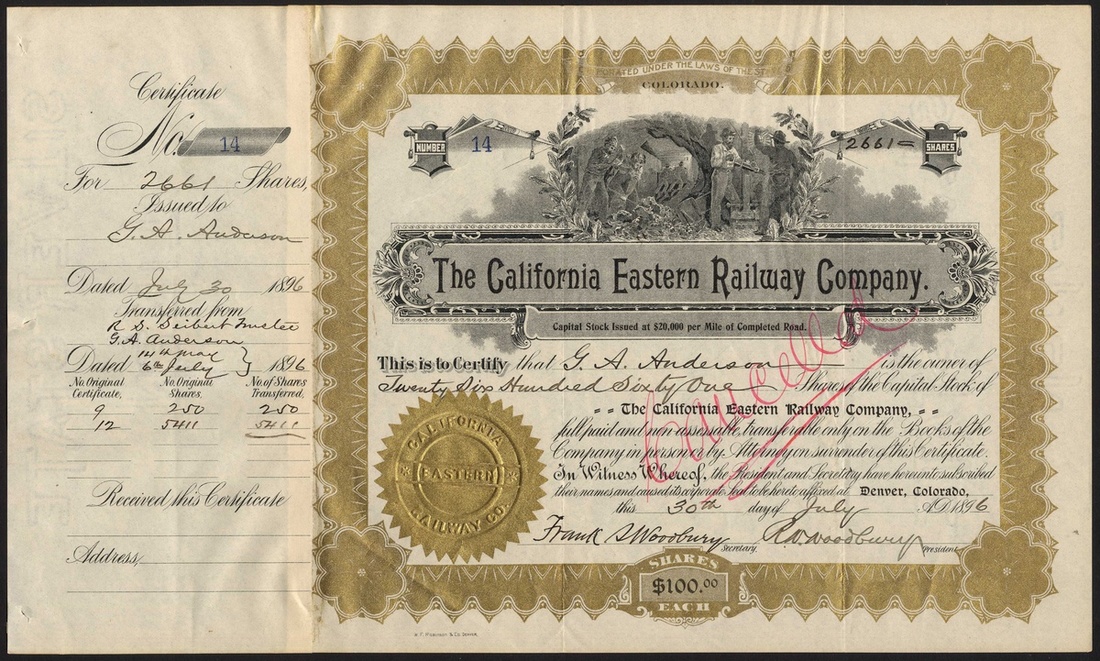 Certificate
No. 14
For 2661 Shares,
Issued to
G. A. Anderson
Dated July 30 1896
Transferred from
R S. Seibert Trustee
G. A. Anderson
14th May
Dated 6th July } 1896
No. Original Certificate. No. Original Shares. No. of Shares Transferred.
9 250 250
12 5411 5411
Received this Certificate
Address,
PORATED UNDER THE LAWS OF THE STATE
COLORADO.
NUMBER 14
2661= SHARES
The California Eastern Railway Company.
Capital Stock Issued at $20,000 per Mile of Completed Road.
This is to Certify that G. A. Anderson is the owner of
Twenty Six Hundred Sixty One Shares of the Capital Stock of
The California Eastern Railway Company,
full paid and non-assessable, transferable only on the Books of the
Company in person or by Attorney on surrender of this Certificate.
In Witness Whereof, the President and Secretary have hereunto subscribed
their names and caused its corporate Seal to be hereto affixed at Denver, Colorado,
this 30th day of July A.D. 1896
Cancelled
CALIFORNIA
EASTERN
RAILWAY CO.
Frank S Woodbury Secretary. R W Woodbury President
SHARES
$100.00
EACH